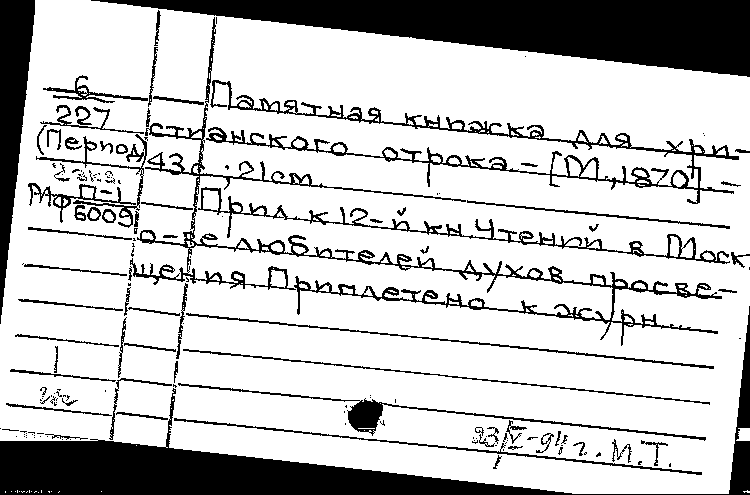 6
227
(Период)
2 экз.
П-1
6009
Памятная книжка для хри-
стианского отрока. - [М., 1870]. -
43с.; 21см.
Прил. к 12-й кн. Чтений в Моск.
о-ве любителей духов. просве-
щения Приплетено к журн...
1
23/V-94 г. М.Т.